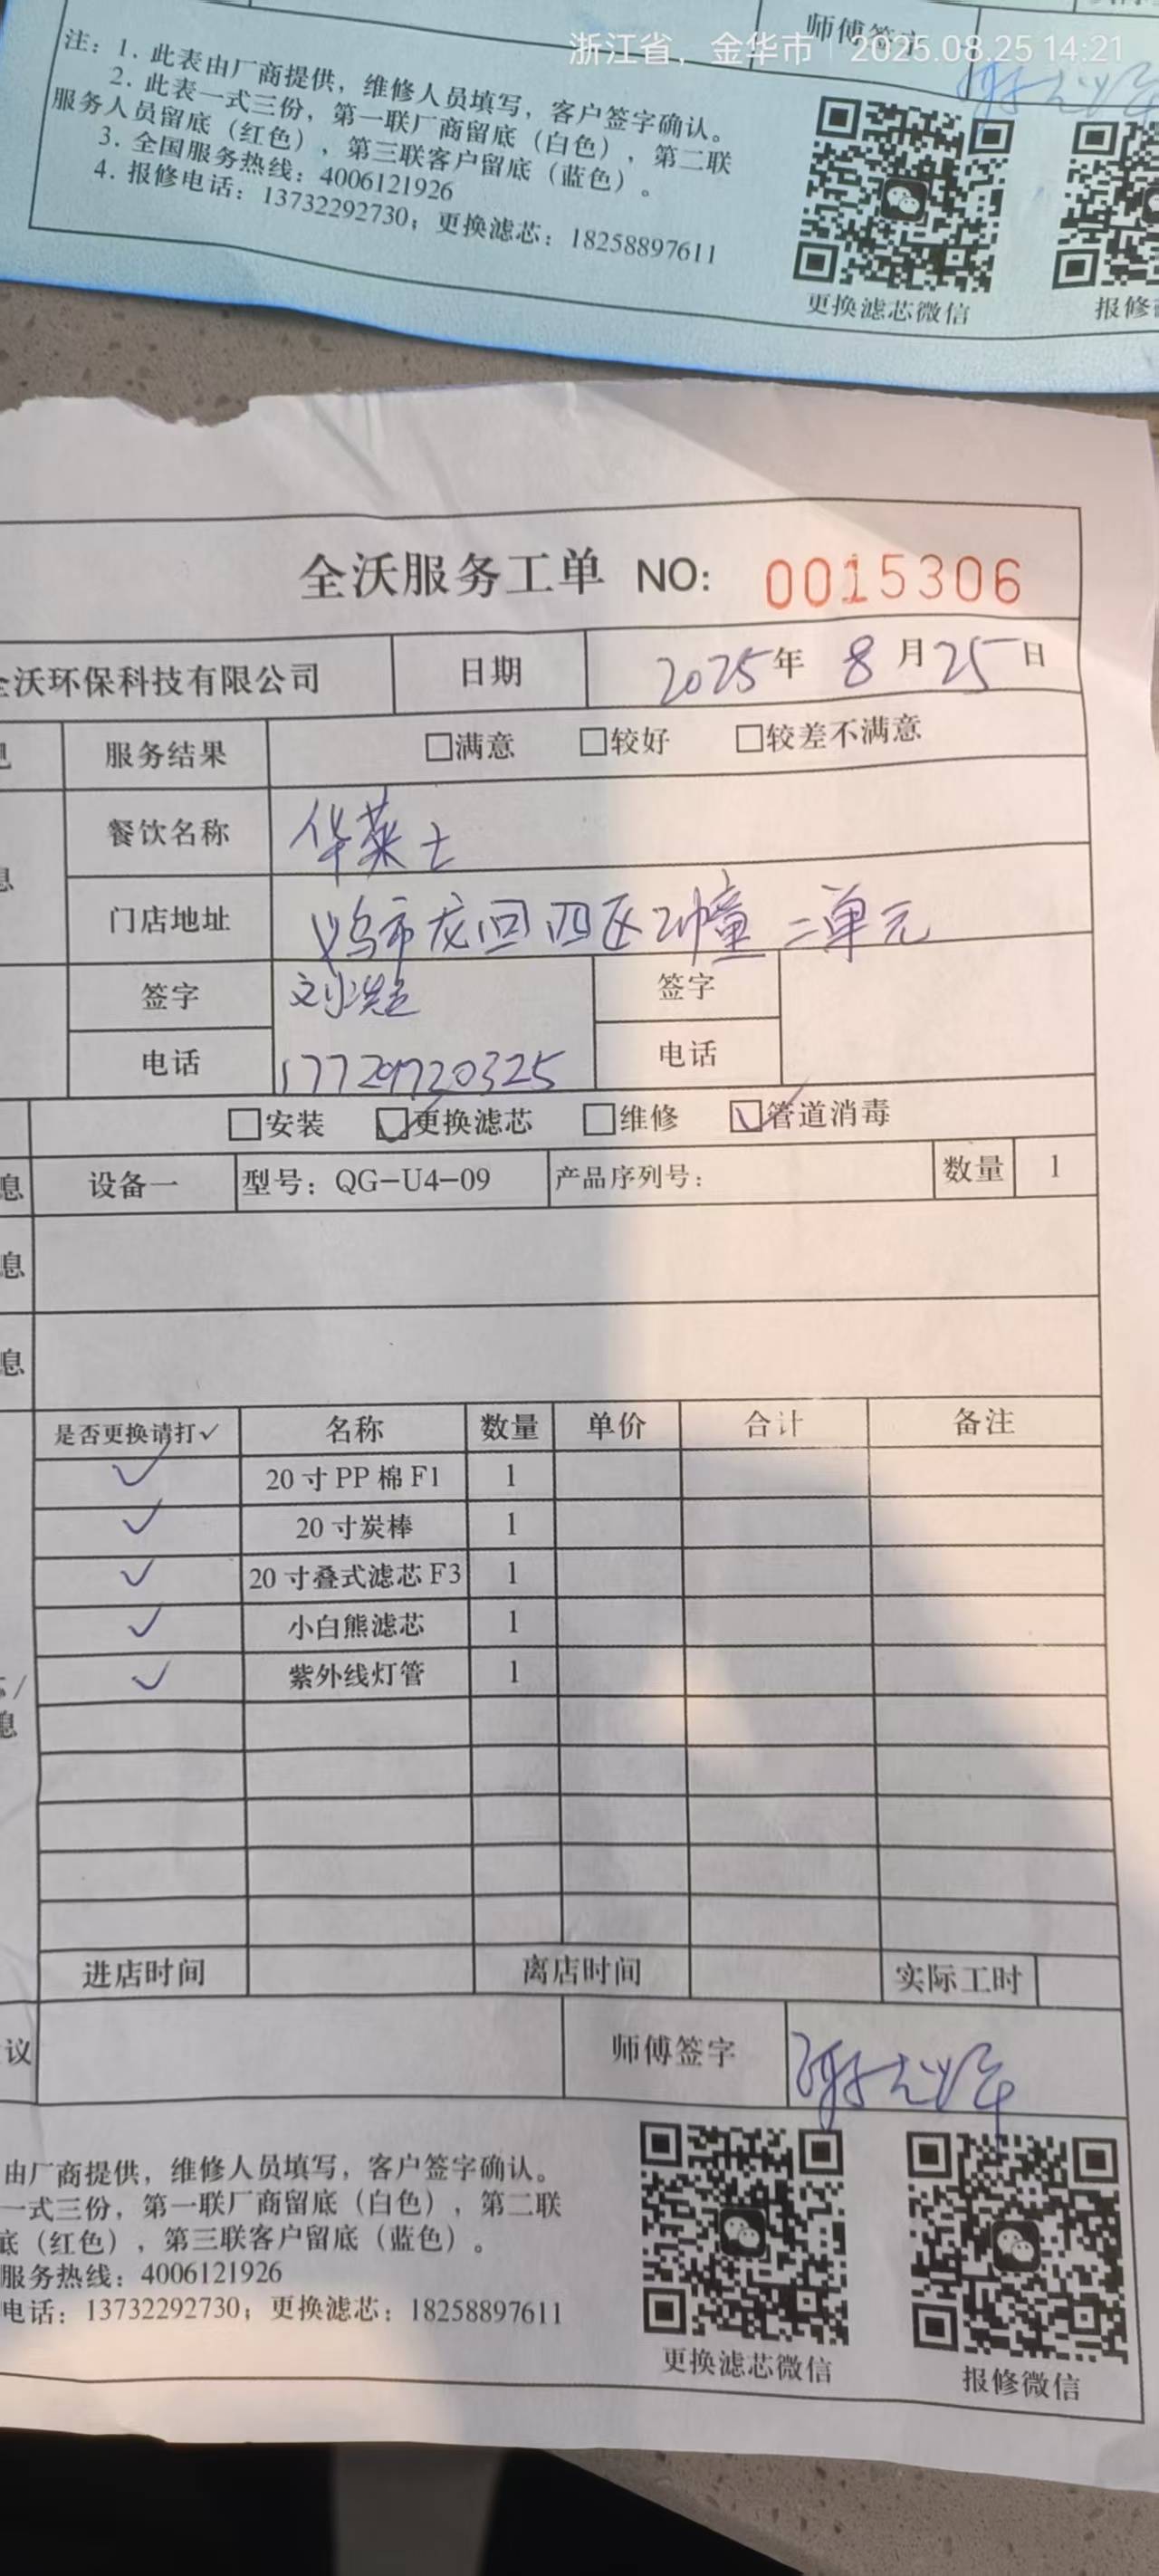 师傅签字
浙江省，金华市 2025.08.25 14:21
注：1. 此表由厂商提供，维修人员填写，客户签字确认。
2. 此表一式三份，第一联厂商留底（白色），第二联
服务人员留底（红色），第三联客户留底（蓝色）。
3. 全国服务热线：4006121926
4. 报修电话：13732292730；更换滤芯：18258897611
更换滤芯微信 报修
全沃服务工单 NO: 0015306
全沃环保科技有限公司 日期 2025年 8月25日
服务结果 □满意 □较好 □较差不满意
息 餐饮名称 华莱士
门店地址 义乌市龙回四区2幢二单元
签字 签字
电话 17729720325 电话
□安装 ☑更换滤芯 □维修 ☑管道消毒
息 设备一 型号：QG-U4-09 产品序列号： 数量 1
息
息
是否更换请打✓ 名称 数量 单价 合计 备注
✓ 20寸PP棉F1 1
✓ 20寸炭棒 1
✓ 20寸叠式滤芯F3 1
✓ 小白熊滤芯 1
✓ 紫外线灯管 1
/
息
进店时间 离店时间 实际工时
议 师傅签字
由厂商提供，维修人员填写，客户签字确认。
一式三份，第一联厂商留底（白色），第二联
底（红色），第三联客户留底（蓝色）。
服务热线：4006121926
电话：13732292730；更换滤芯：18258897611
更换滤芯微信 报修微信